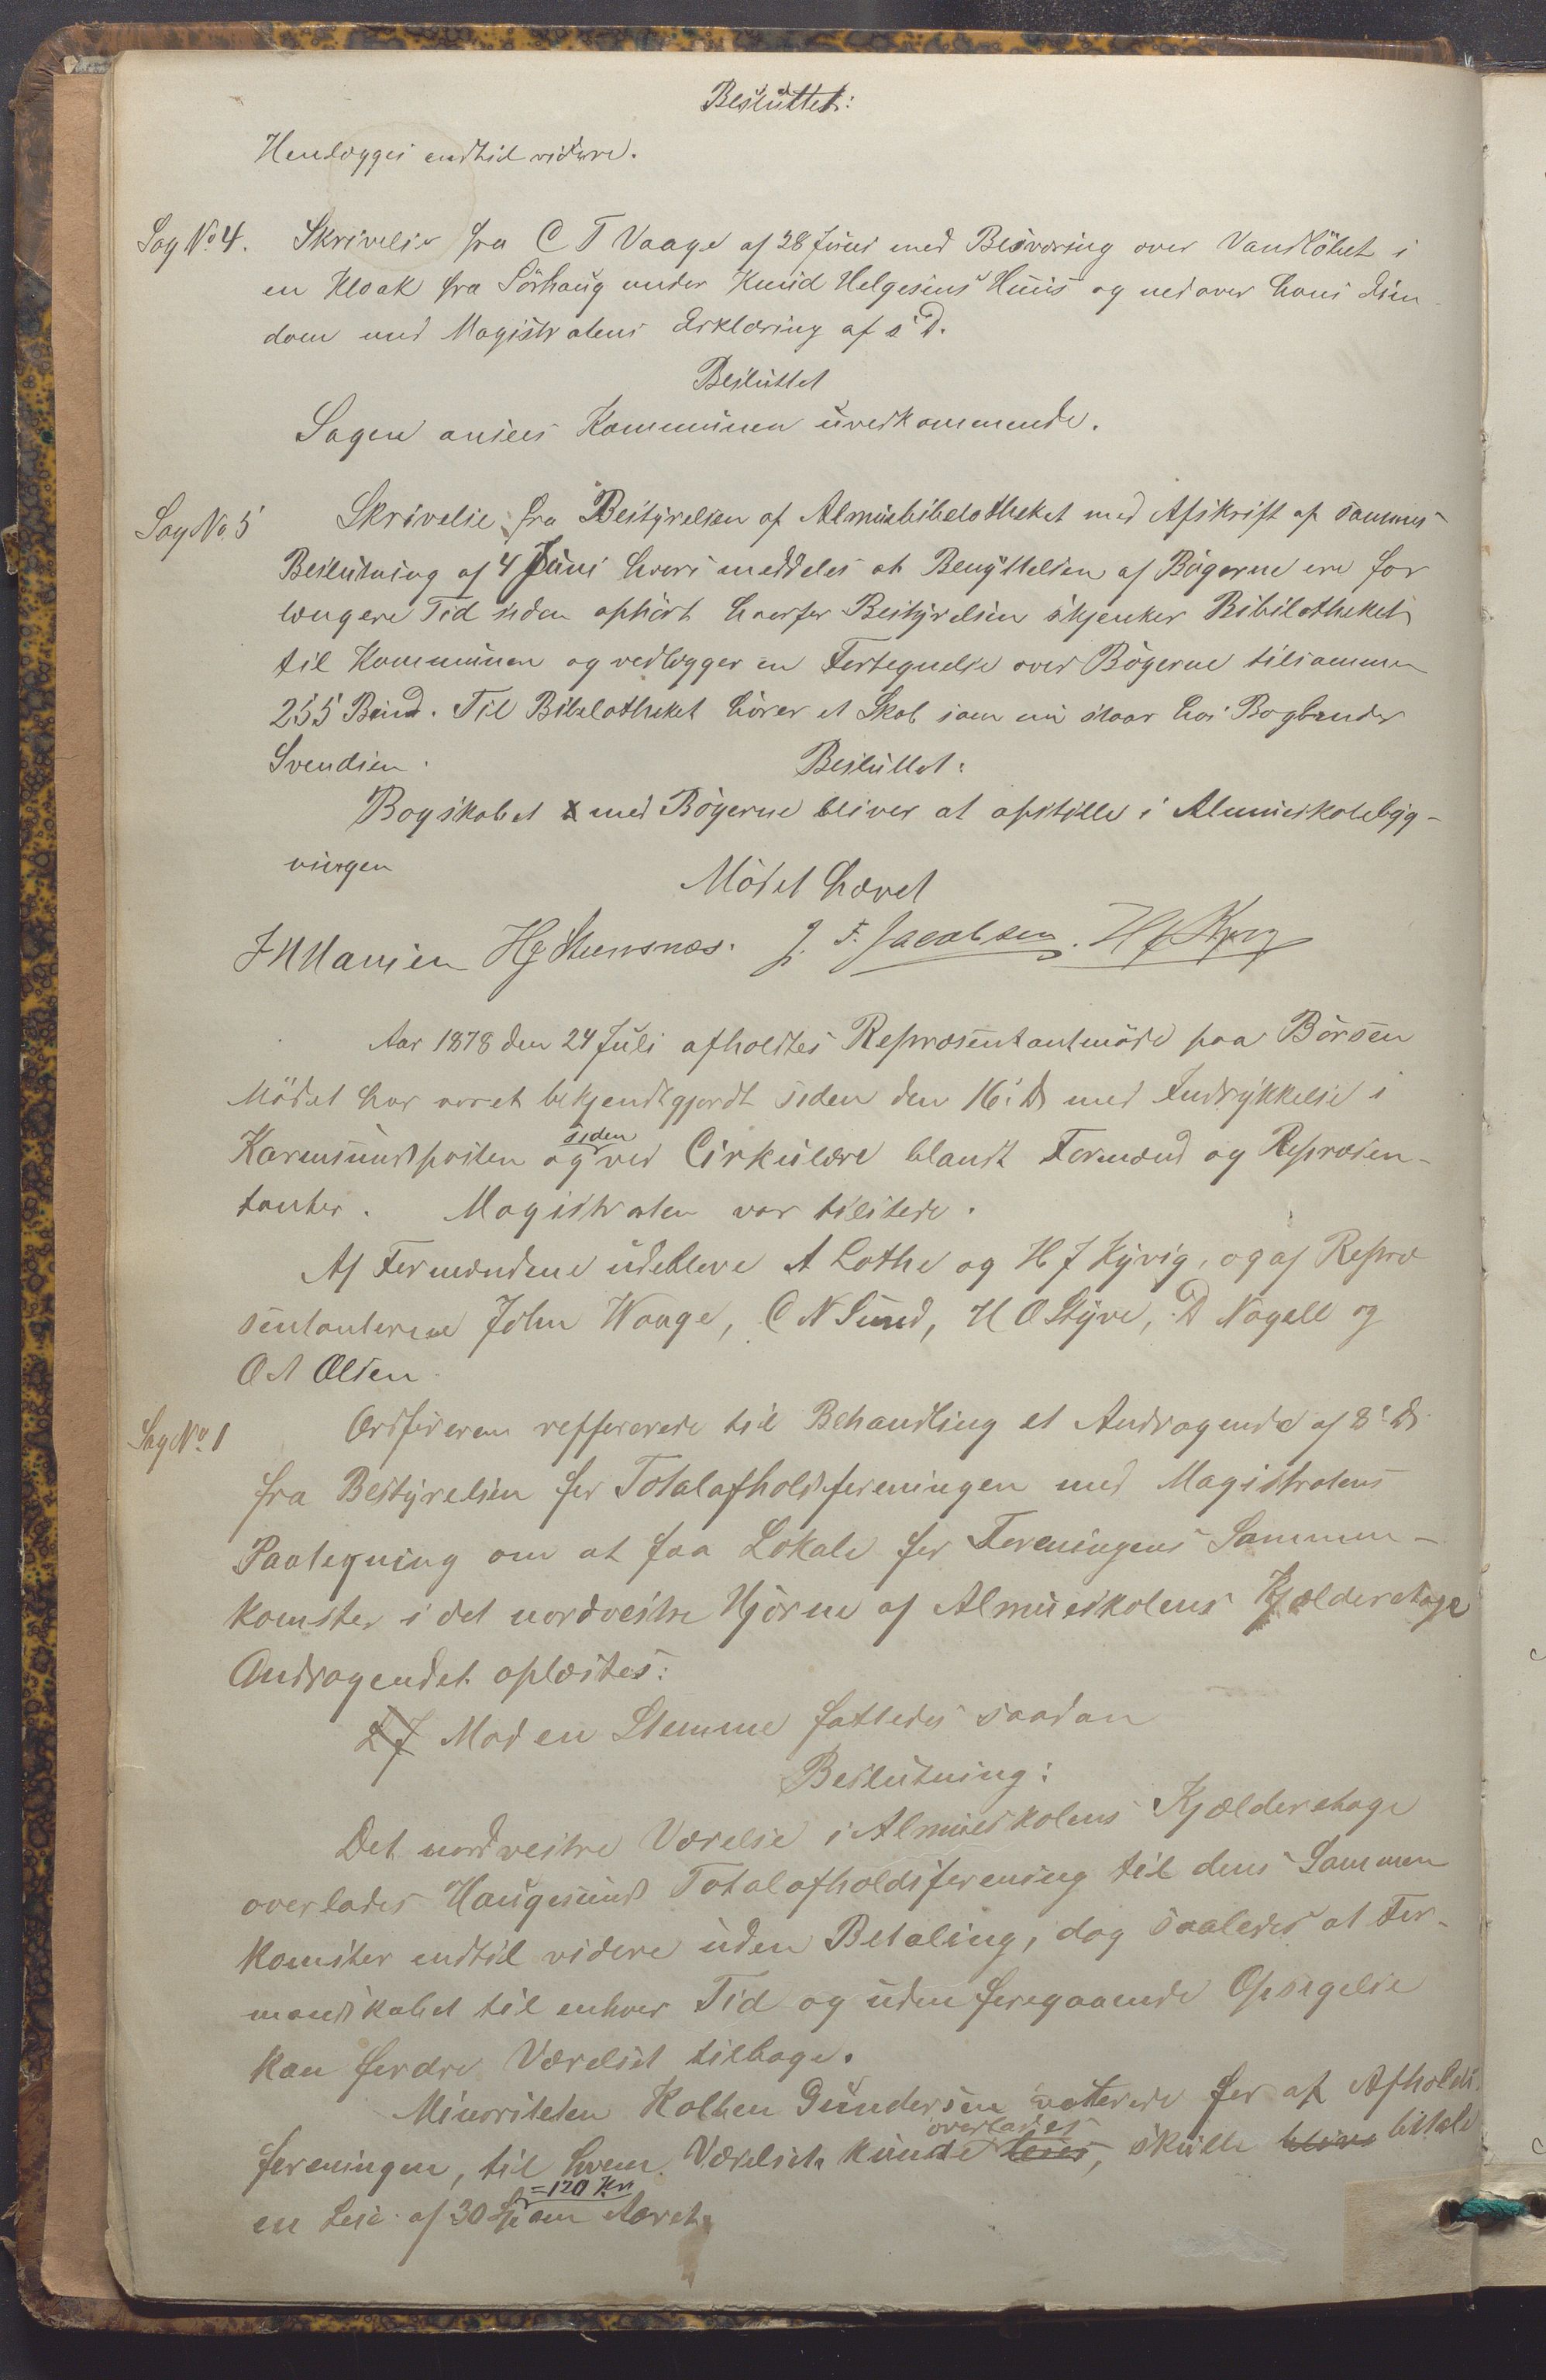 Besluttet:
Henlægges indtil videre.
Sag No 4. Skrivelse fra C T Vaage af 28 Juni med Besværing over Vandløbet i
en Kloak fra Sörhaug under Knud Helgesens Huus og nedover hans Eien
dom med Magistratens Erklæring af s D.
Besluttet
Sagen ansees Kommunen uvedkommende.
Sag No. 5 Skrivelse fra Bestyrelsen af Almuebibelotheket med Afskrift af sammes
Beslutning af 4 Juni hvori meddeles at Benyttelsen af Bøgerne ere for
længere Tid siden ophört hvorfor Bestyrelsen skjenker Bibilotheket
til Kommunen og vedlægger en Fortegnelse over Bögerne tilsammen
255 Bind. Til Bibelotheket hörer et Skab som nu staar hos Bogbinder
Svendsen. Besluttet:
Bogskabet med Bögerne bliver at opstille i Almueskolebyg-
ningen
Mödet hævet
J N Hansen H J Steensnæs. J. F. Jacobsen. H J Kyvig
Aar 1878 den 24 Juli afholdtes Repræsentantmöde paa Börsen
Mödet har været bekjendtgjordt siden den 16 i D med Indrykkelse i
Karmsundsposten og siden ved Cirkulære blandt Formænd og Repræsen-
tanter. Magistraten var tilstede.
Af Formændene udebleve A Lothe og H J Kyvig, og af Repræ
sentanterne John Waage, C N Sund, H O Styve, D Nagell og
O A Olsen.
Sag No. 1 Ordföreren reffererede til Behandling et Andragende af 8 i D.
fra Bestyrelsen for Totalafholdsforeningen med Magistratens
Paategning om at faa Lokale for Foreningens Sammen-
komster i det nordvestre Hjörne af Almueskolens Kjælderetage
Andragendet oplæstes:
Mod en Stemme fattedes saadan
Beslutning:
Det nordvestre Værelse i Almueskolens Kjælderetage
overlades Haugesunds Totalafholdsforening til dens Sammen
komster indtil videre uden Betaling, dog saaledes at For-
mandskabet til enhver Tid og uden foregaaende Opsigelse
kan fordre Værelset tilbage.
Minoriteten Kolben Gundersen voterede for at Afholds
foreningen, til hvem Værelset kunde leies overlades, skulle blive betale
en Leie af 30 Sp =120 Kr om Aaret.